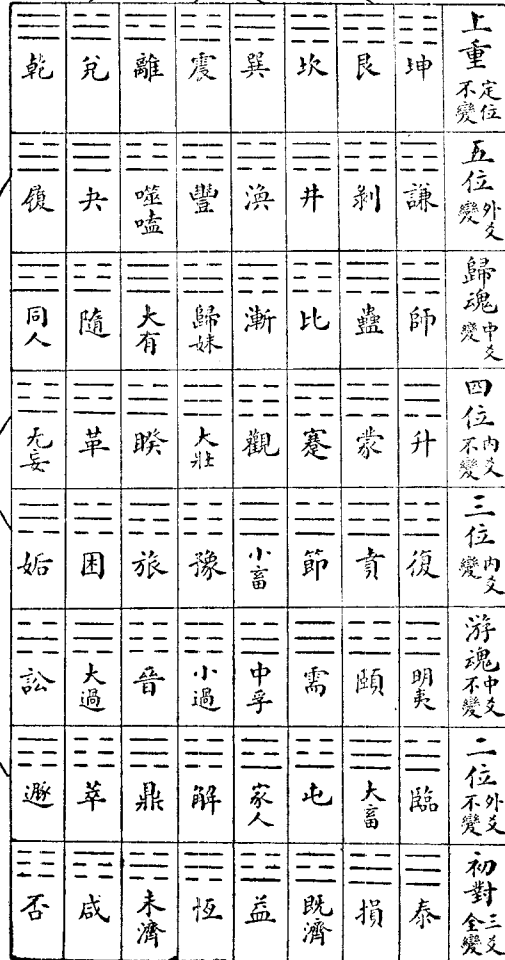 上重 定位不變 坤 艮 坎 巽 震 離 兌 乾
五位 外爻變 謙 剝 井 渙 豐 噬嗑 夬 履
歸魂 中爻變 師 蠱 比 漸 歸妹 大有 隨 同人
四位 內爻不變 升 蒙 蹇 觀 大壯 睽 革 无妄
三位 內爻變 復 賁 節 小畜 豫 旅 困 姤
游魂 中爻不變 明夷 頤 需 中孚 小過 晉 大過 訟
二位 外爻不變 臨 大畜 屯 家人 解 鼎 萃 遯
初對 三爻全變 泰 損 既濟 益 恆 未濟 咸 否